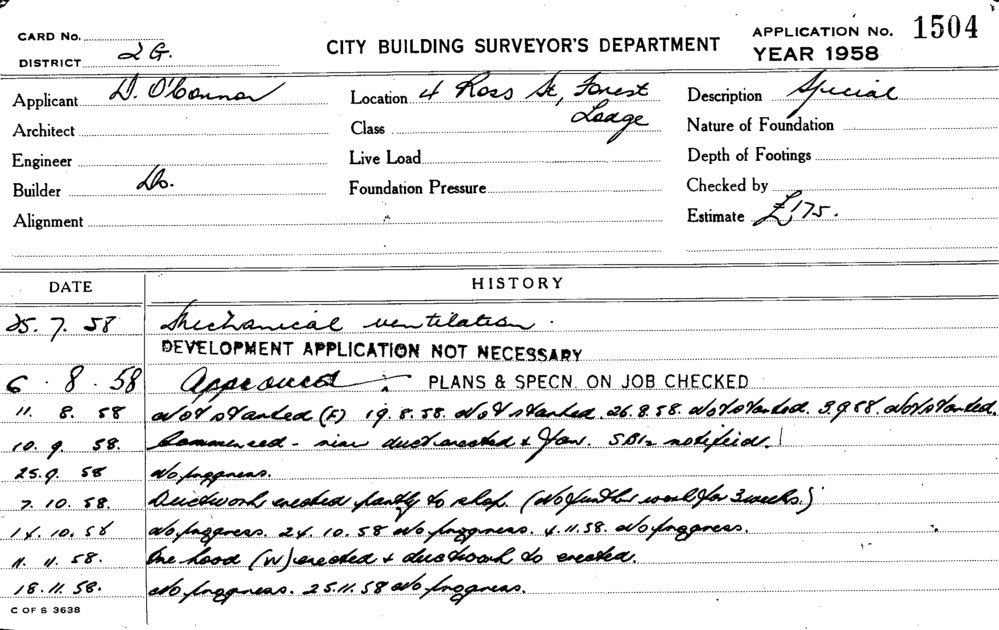 CARD No.
DISTRICT 2 G.
CITY BUILDING SURVEYOR'S DEPARTMENT
APPLICATION No. 1504
YEAR 1958
Applicant D. O'Connor
Location 4 Ross St, Forest Lodge
Description Special
Architect
Class
Nature of Foundation
Engineer
Live Load
Depth of Footings
Builder Do.
Foundation Pressure
Checked by
Alignment
Estimate £175.
DATE HISTORY
25. 7. 58 Mechanical ventilation.
DEVELOPMENT APPLICATION NOT NECESSARY
6. 8. 58 Approved PLANS & SPECN. ON JOB CHECKED
11. 8. 58 Not started (E) 19.8.58. Not started. 26.8.58. Not started. 3.9.58. Not started.
10. 9. 58. Commenced - duct erected & fan. notified.
25.9. 58 No progress.
7. 10. 58. Ductwork erected partly to shop. (No further work for 3 weeks.)
14. 10. 58 No progress. 24. 10. 58 No progress. 4.11.58. No progress.
11. 11. 58. One hood (W) erected & ductwork to erected.
18. 11. 58. No progress. 25.11.58 No progress.
C OF S 3638